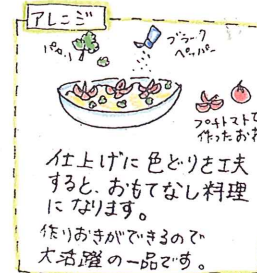 アレンジ
パセリ
ブラック
ペッパー
プチトマトで
作ったお
仕上げに色どりを工夫
すると、おもてなし料理
になります。
作りおきができるので
大活躍の一品です。